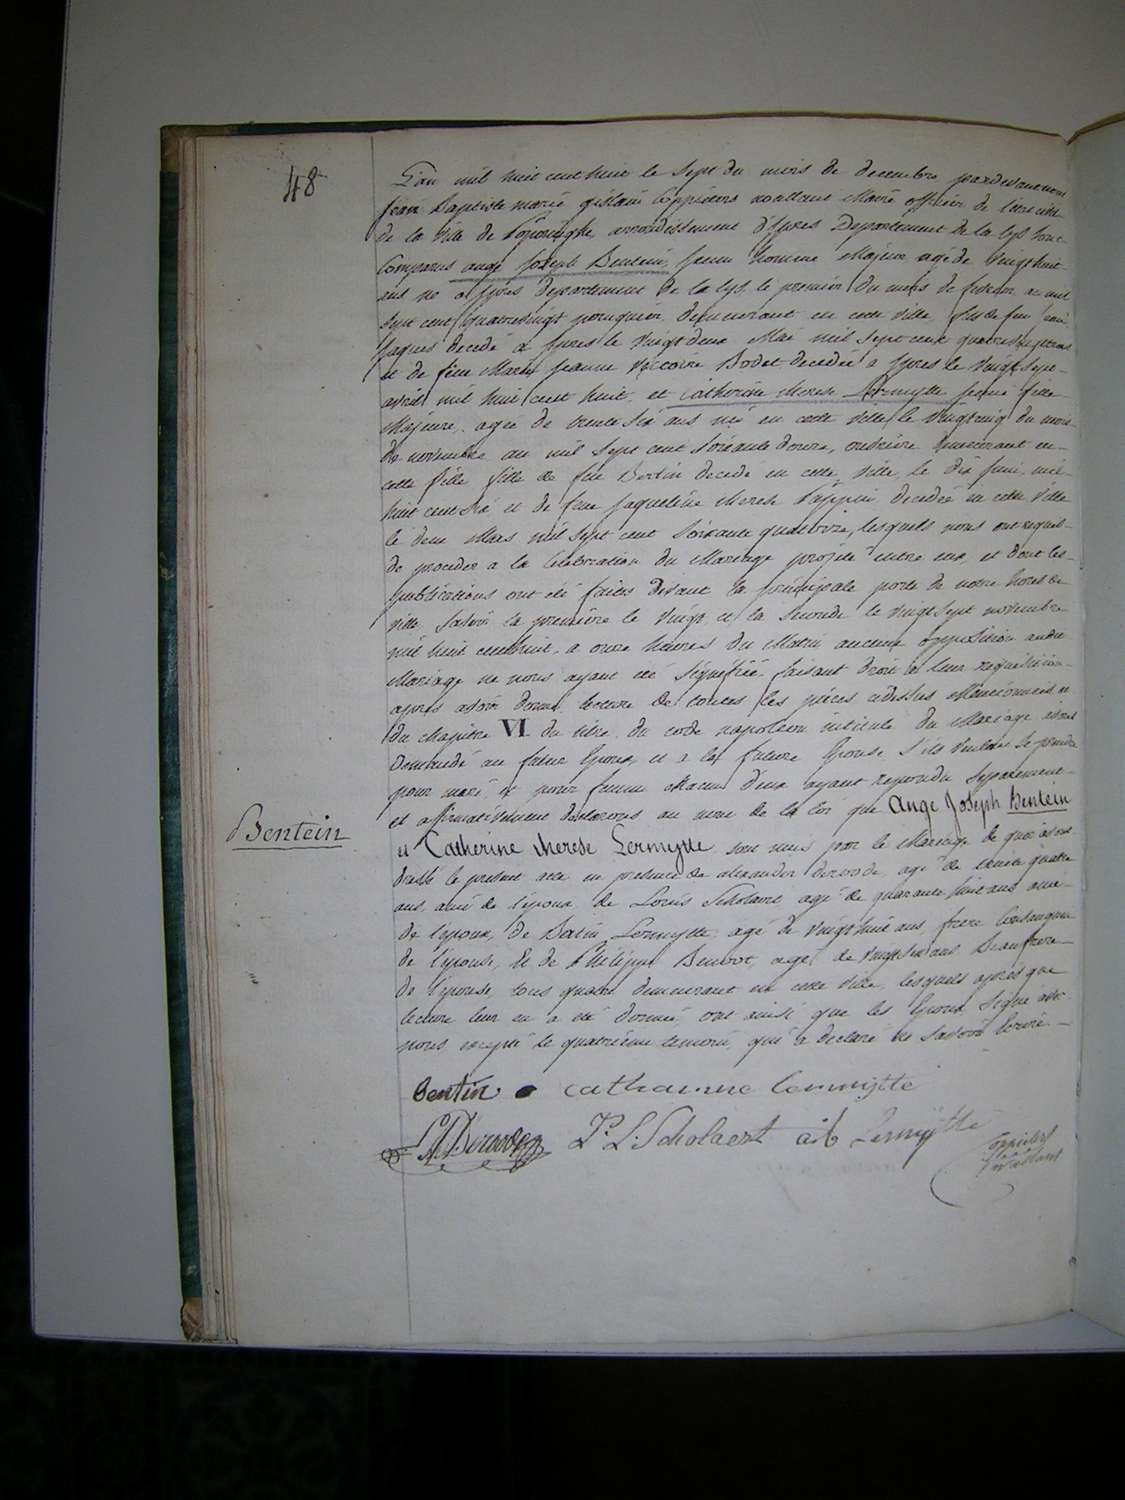 48
L'an mil huit cent huit le sept du mois de decembre pardevant nous
jean Baptiste marie gislain Coppieters maire officier de l'état civil
de la ville de Poperinghe, arrondissement d'Ypres Departement de la lys sont
Comparus ange Joseph Bentein, jeune homme Majeur agé de vingt huit
ans né a Ypres departement de la lys le premier du mois de fevrier an mil
sept cent quatrevingt perruquier, demeurant en cette ville, fils de feu
Jaques decedé a Ypres le vingt deux Mai mil sept cent quatrevingt
et de feue Marie Jeanne Victoire Bodet decedée a Ypres le vingt sept
avril mil huit cent huit, et Catherine therese Lermytte jeune fille
Majeure, agée de trente six ans née en cette ville le vingt cinq du mois
de novembre an mil sept cent soixante douze, ouvriere demeurant en
cette ville fille de feu Bertin decedé en cette ville, le dix juin mil
huit cent six et de feue Jaqueline therese decedée en cette ville
le deux Mars mil sept cent soixante quatorze, lesquels nous ont requis
de proceder a la Celebration du Mariage projeté entre eux, et dont les
publications ont été faites devant la principale porte de notre hotel de
ville savoir la premiere le vingt et la seconde le vingt sept novembre
mil huit cent huit, a onze heures du Matin aucune opposition audit
Mariage ne nous ayant été signifiée, faisant droit a leur requisition
apres avoir donné lecture de toutes les pieces cidessus Mentionnées et
du chapitre VI du titre du code napoleon intitulé du Mariage avons
Demandé au futur Epoux et a la future Epouse s'ils veulent se prendre
pour mari et pour femme chacun d'eux ayant repondu separement
et affirmativement declarons au nom de la loi que Ange Joseph Bentein
Bentein
et Catherine therese Lermytte sont unis par le Mariage de quoi avons
dressé le present acte en presence de alexander agé de trente quatre
ans, ami de l'epoux, de Louis Scholaert agé de quarante huit ans ami
de l'epoux, de Bertin Lermytte agé de vingt huit ans frere Consanguin
de l'epouse, et de Philippe agé de vingt six ans Beaufrere
de l'epouse, tous quatre demeurant en cette ville, lesquels apres que
lecture leur en a été donnée ont ainsi que les Epoux signé avec
nous excepté le quatrieme temoin, qui a declaré ne savoir Ecrire.
Bentin catharinne lermijtte
P. L. Scholaert Lermytte
Coppieters